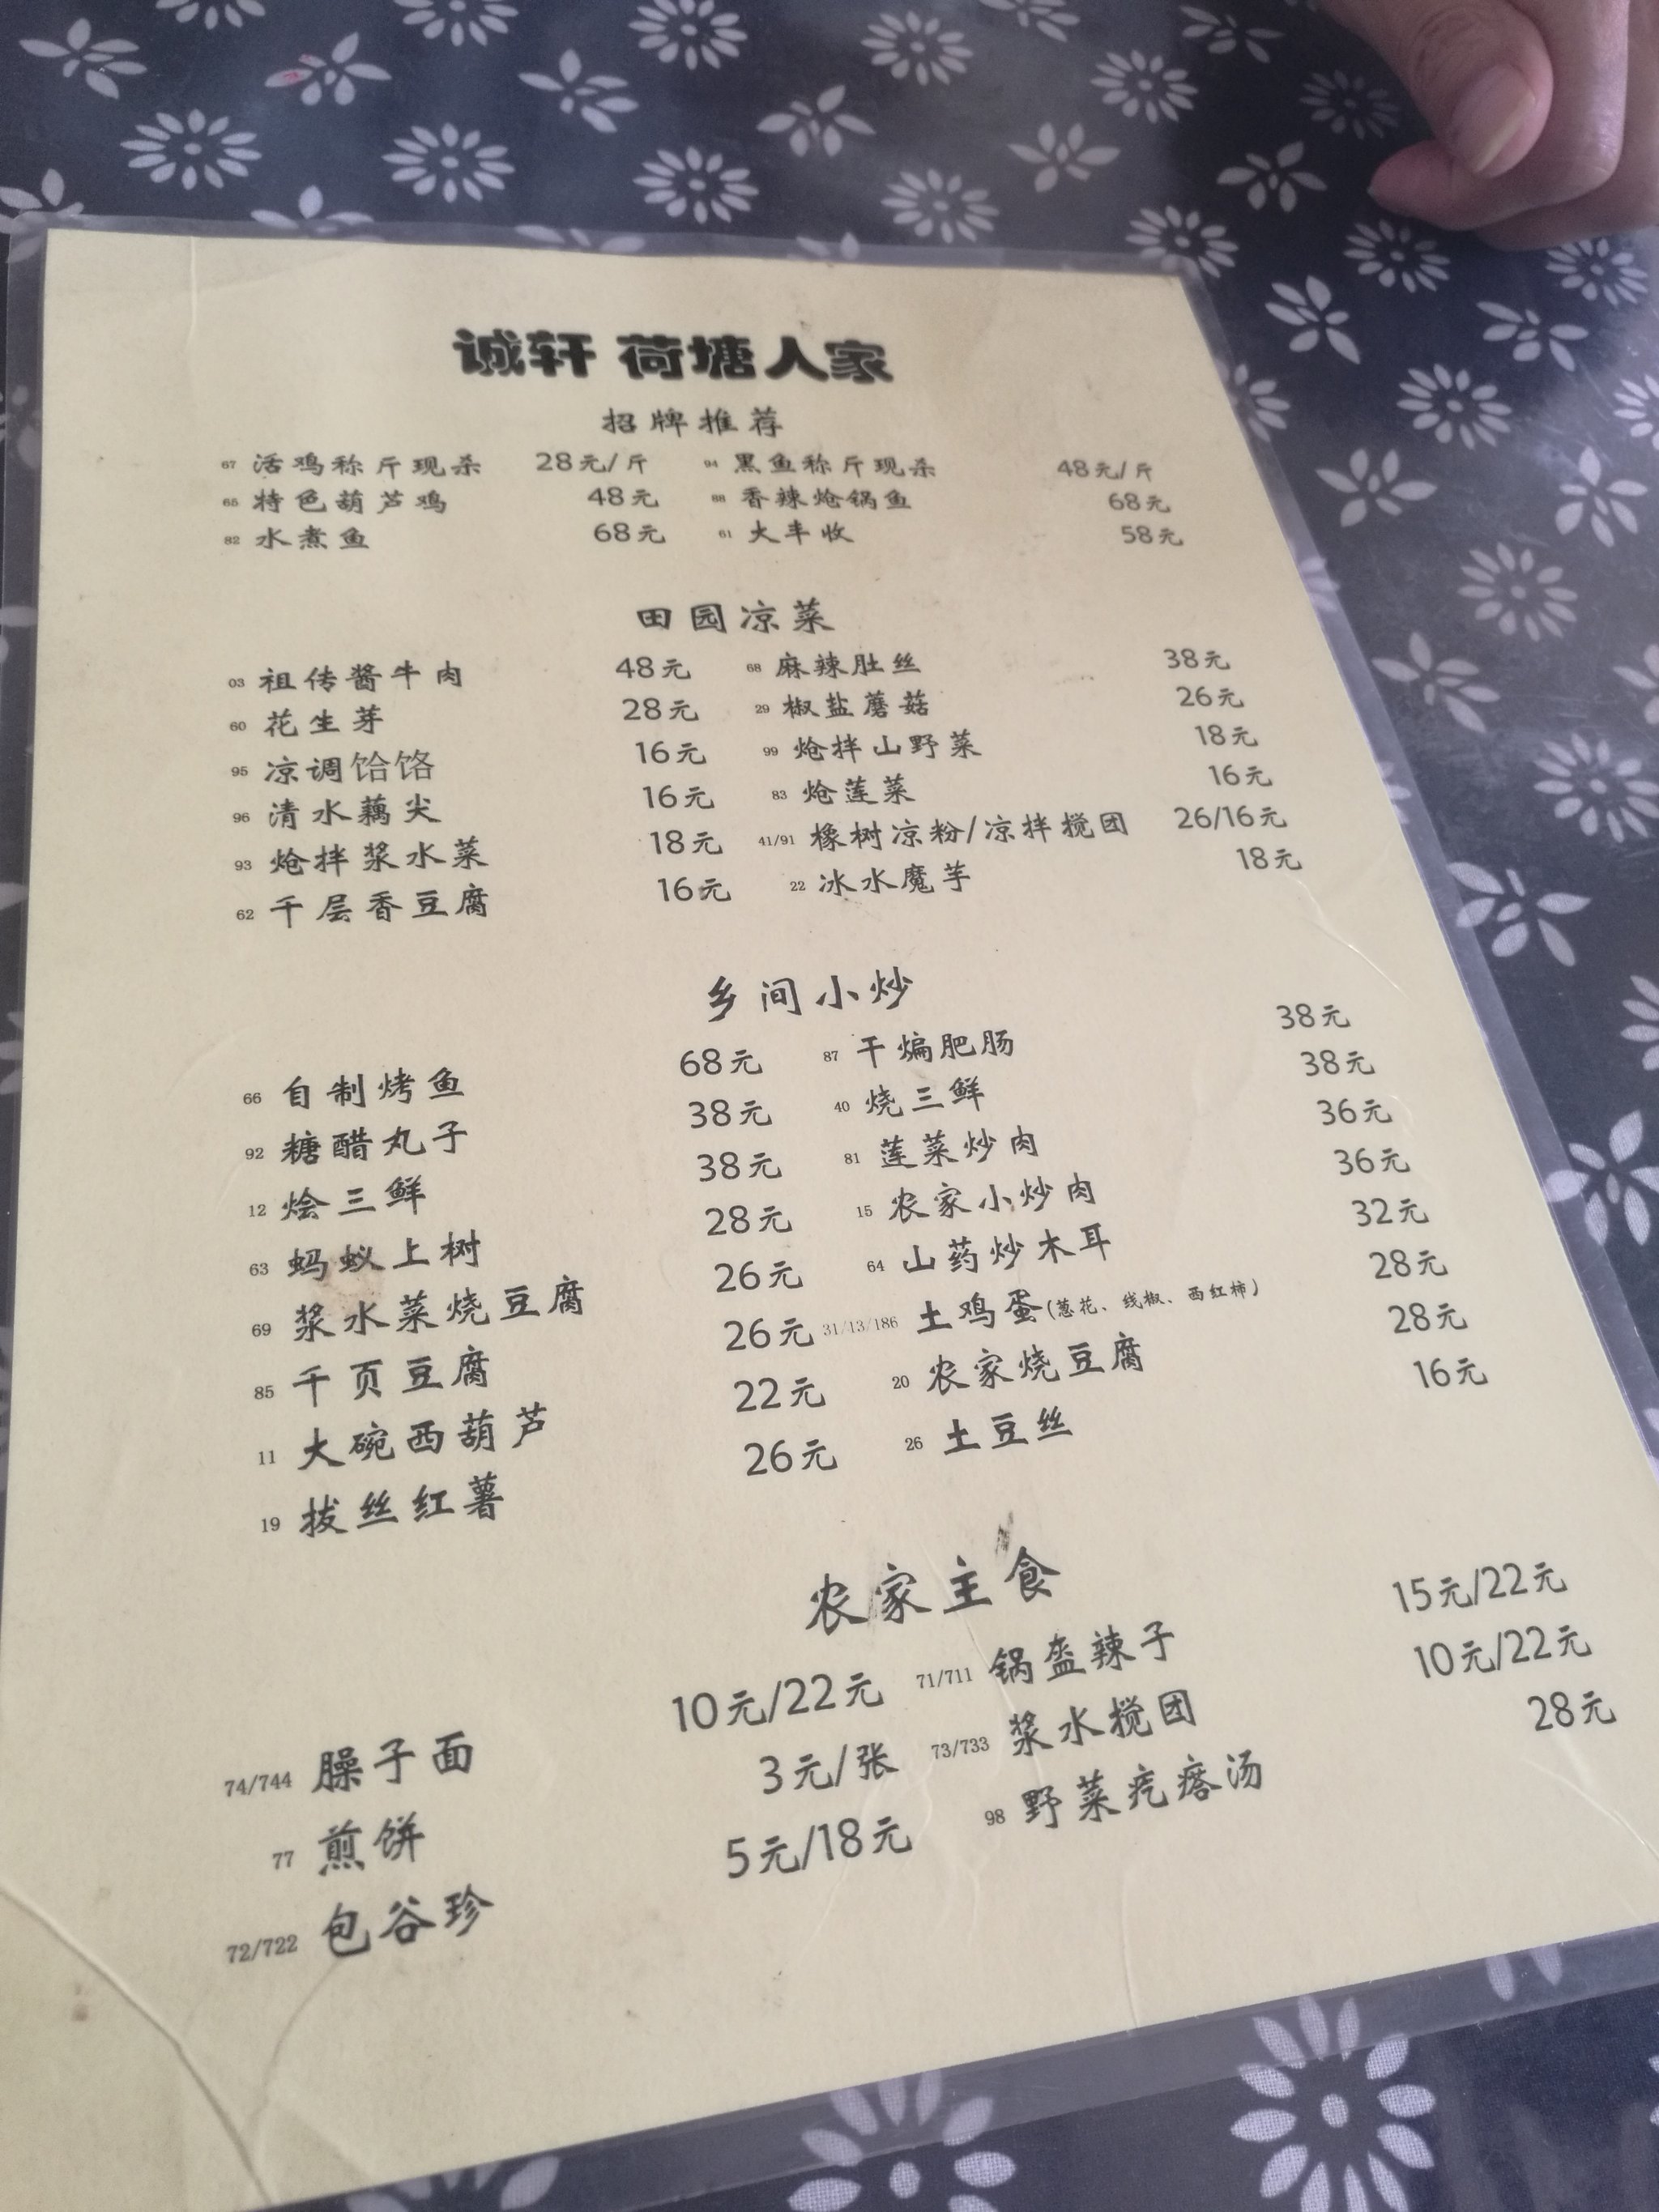 诚轩 荷塘人家
招牌推荐
67 活鸡称斤现杀 28元/斤 94 黑鱼称斤现杀 48元/斤
65 特色葫芦鸡 48元 88 香辣炝锅鱼 68元
82 水煮鱼 68元 61 大丰收 58元
田园凉菜
03 祖传酱牛肉 48元 68 麻辣肚丝 38元
60 花生芽 28元 29 椒盐蘑菇 26元
95 凉调饸饹 16元 99 炝拌山野菜 18元
96 清水藕尖 16元 83 炝莲菜 16元
93 炝拌浆水菜 18元 41/91 橡树凉粉/凉拌搅团 26/16元
62 千层香豆腐 16元 22 冰水魔芋 18元
乡间小炒
66 自制烤鱼 68元 87 干煸肥肠 38元
92 糖醋丸子 38元 40 烧三鲜 38元
12 烩三鲜 38元 81 莲菜炒肉 36元
63 蚂蚁上树 28元 15 农家小炒肉 36元
69 浆水菜烧豆腐 26元 64 山药炒木耳 32元
85 千页豆腐 26元 31/13/186 土鸡蛋(葱花、线椒、西红柿) 28元
11 大碗西葫芦 22元 20 农家烧豆腐 28元
19 拔丝红薯 26元 26 土豆丝 16元
农家主食
74/744 臊子面 10元/22元 71/711 锅盔辣子 15元/22元
77 煎饼 3元/张 73/733 浆水搅团 10元/22元
72/722 包谷珍 5元/18元 98 野菜疙瘩汤 28元